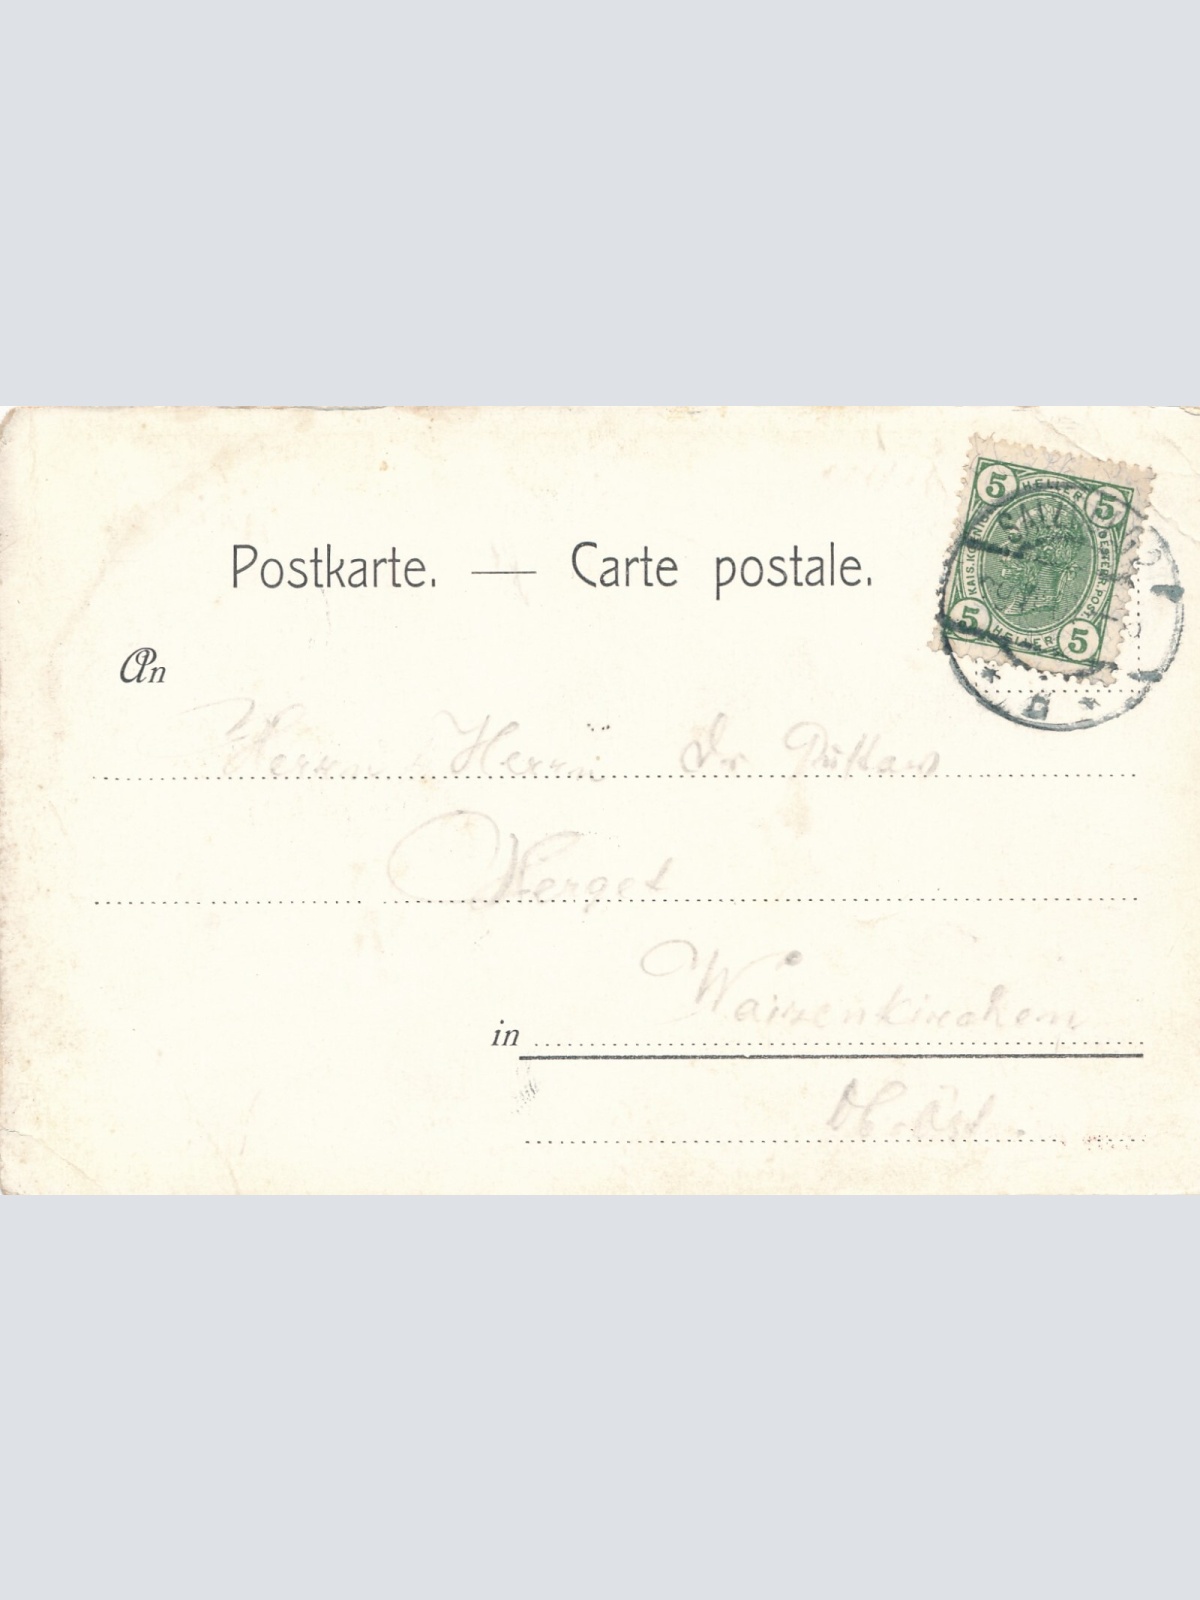 Postkarte. — Carte postale.
5 HELLER 5
KAIS. KOENIGL. OESTERR. POST
5 HELLER 5
An
Herrn Herrn Dr Gustav
Herget
Waizenkirchen
in
Ob. Öst.